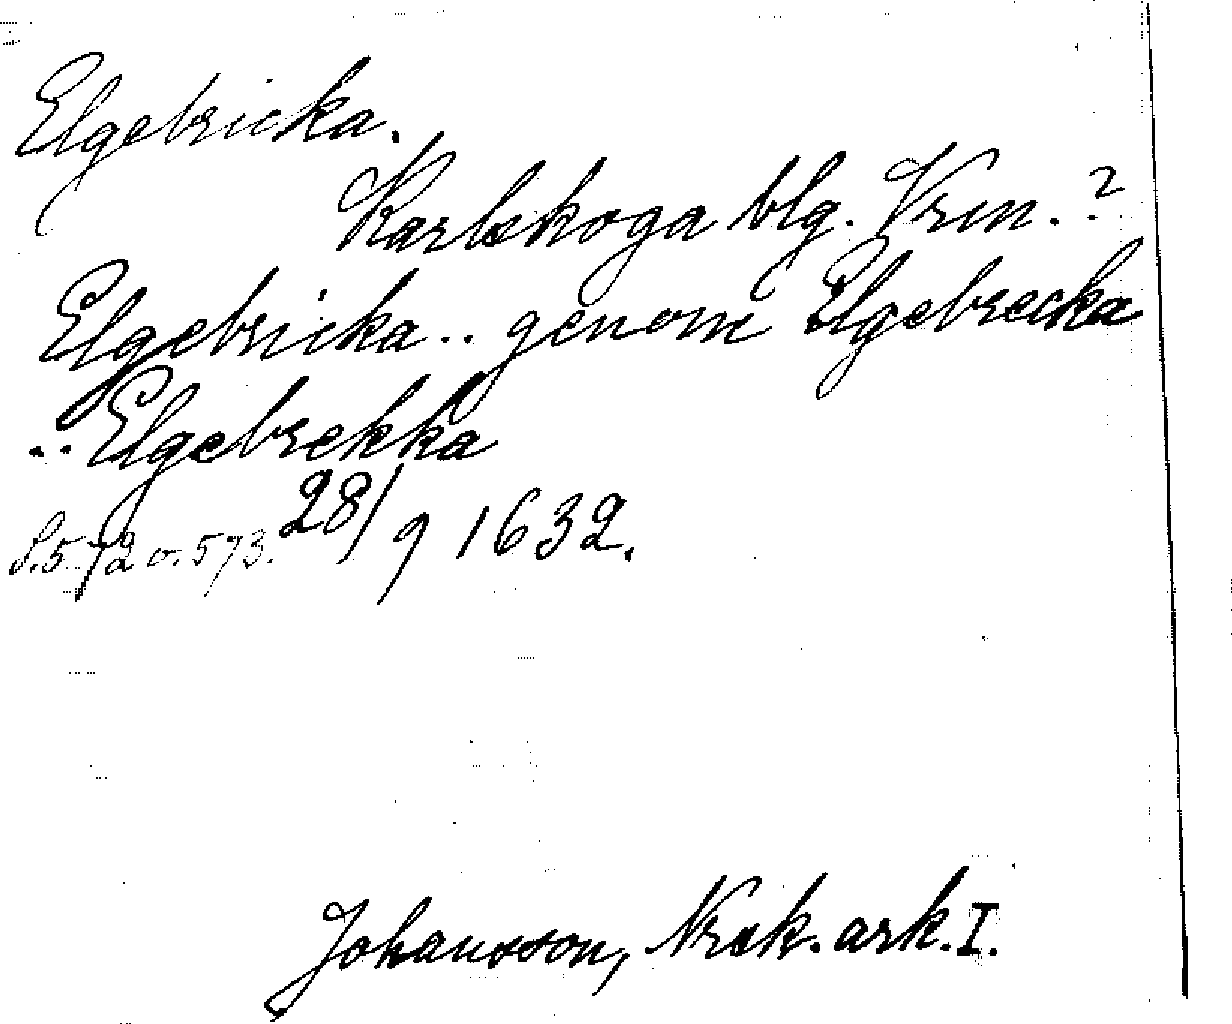 Elgebricka.
Karlskoga blg. Vrm.?
Elgebricka .. genom Elgebrecka
.. Elgebrekka
S. 572 o. 573. 28/9 1632.
Johansson, Nrck. ark. I.